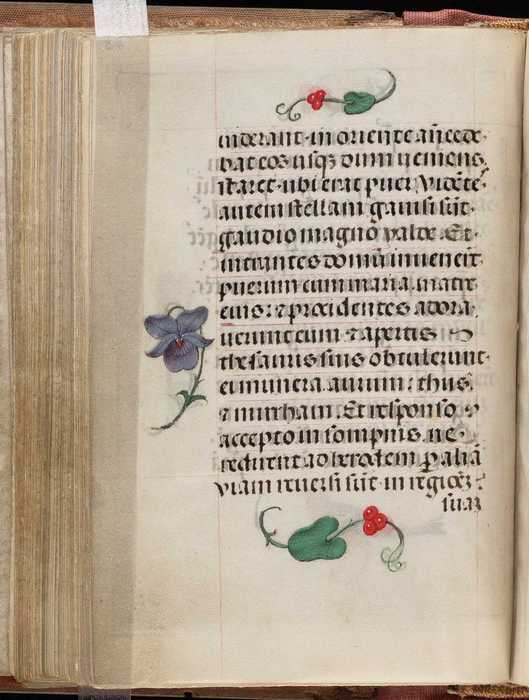 uiderant in oriente añcede
bat eos usq dum ueniens
staret ubi erat puer Vidẽte
autem stellam gauisi sũt
gaudio magno valde. Et
intrantes domũ inuenerũt
puerum cum maria matre
eius: ⁊ procidentes adora
uerunt eum ⁊ apertis
thesauris suis obtulerunt
ei munera aurum: thus
⁊ mirrham. Et responso
accepto in sompnis. ne
redirent ad herodem p aliã
viam reuersi sũt in regionẽ
suaȝ